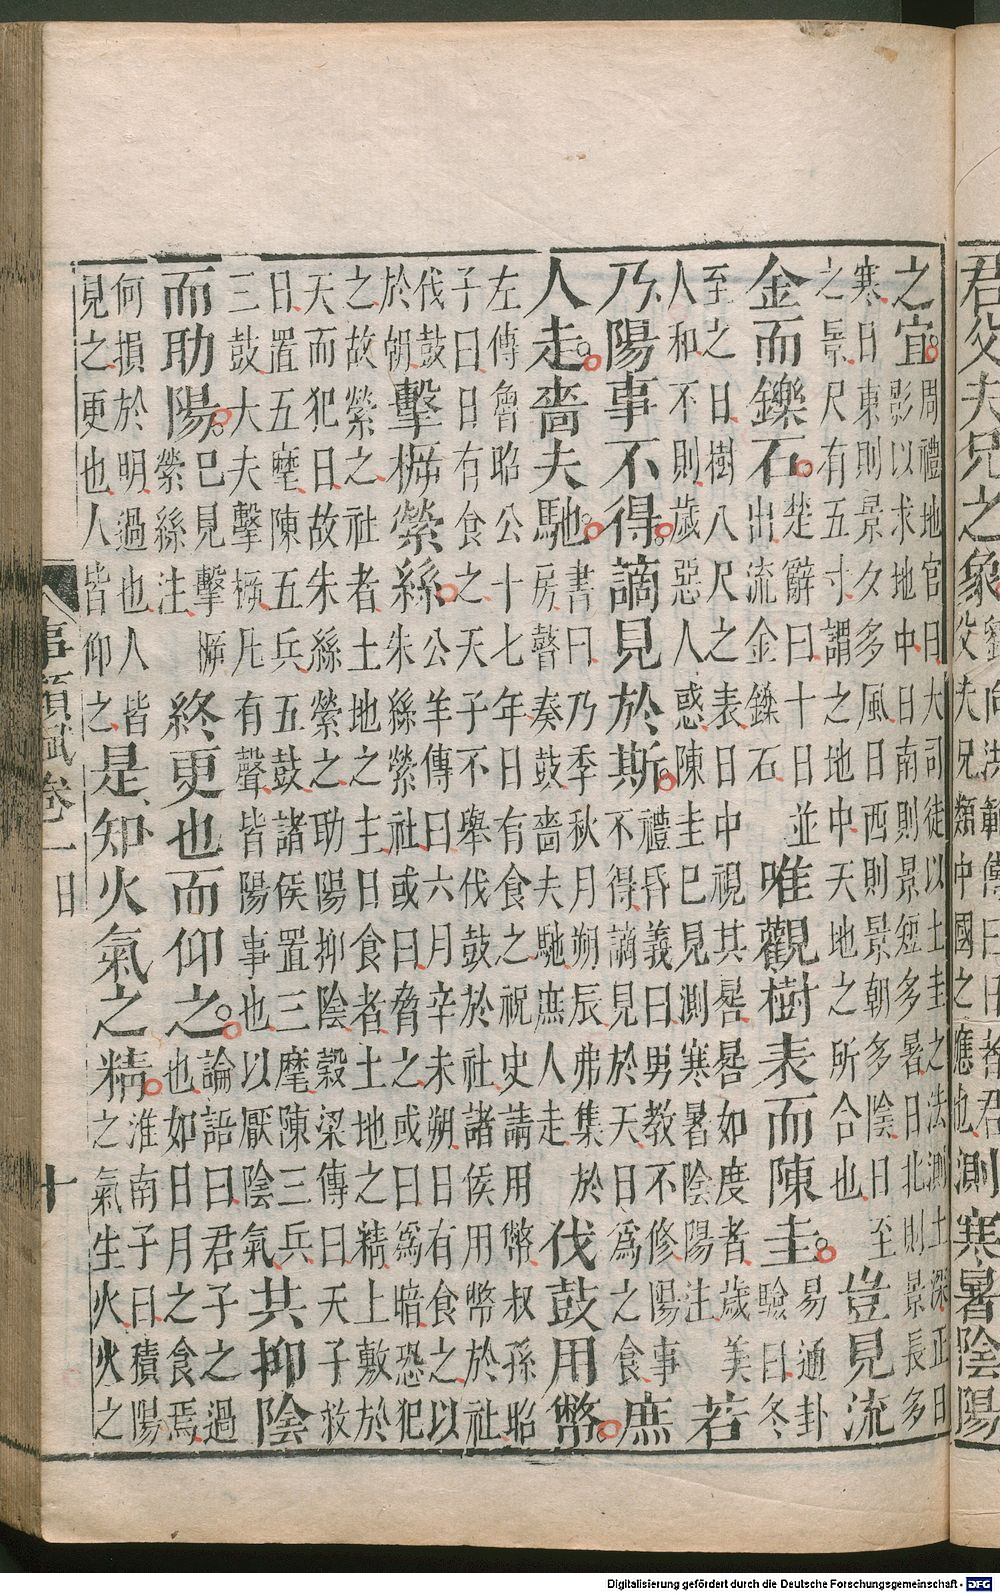 君父夫兄之象劉向洪範傳曰日者君父夫兄類中國之應也測寒暑陰陽
之宜周禮地官曰大司徒以土圭之法測土深正日影以求地中日南則景短多暑日北則景長多
寒日東則景夕多風日西則景朝多陰日至之景尺有五寸謂之地中天地之所合也豈見流
金而鑠石楚辭曰十日並出流金鑠石唯觀樹表而陳圭易通卦驗曰冬
至之日樹八尺之表日中視其晷晷如度者歲美人和不則歲惡人惑陳圭已見測寒暑陰陽注若
乃陽事不得謫見於斯禮昏義曰男教不修陽事不得謫見於天日為之食庶
人走嗇夫馳書曰乃季秋月朔辰弗集於房瞽奏鼓嗇夫馳庶人走伐鼓用幣
左傳魯昭公十七年日有食之祝史請用幣叔孫昭子曰日有食之天子不舉伐鼓於社諸侯用幣於社
伐鼓於朝擊柝縈絲公羊傳曰六月辛未朔日有食之以朱絲縈社或曰脅之或曰為暗恐犯
之故縈之社者土地之主日食者土地之精上敷於天而犯日故朱絲縈之助陽抑陰穀梁傳曰天子救
日置五麾陳五兵五鼓諸侯置三麾陳三兵三鼓大夫擊柝凡有聲皆陽事也以厭陰氣共抑陰
而助陽已見擊柝縈絲注終更也而仰之論語曰君子之過也如日月之食焉
何損於明過也人皆見之更也人皆仰之是知火氣之精淮南子曰積陽之氣生火火之
事類賦卷一 日 十
Digitalisierung gefördert durch die Deutsche Forschungsgemeinschaft - DFG